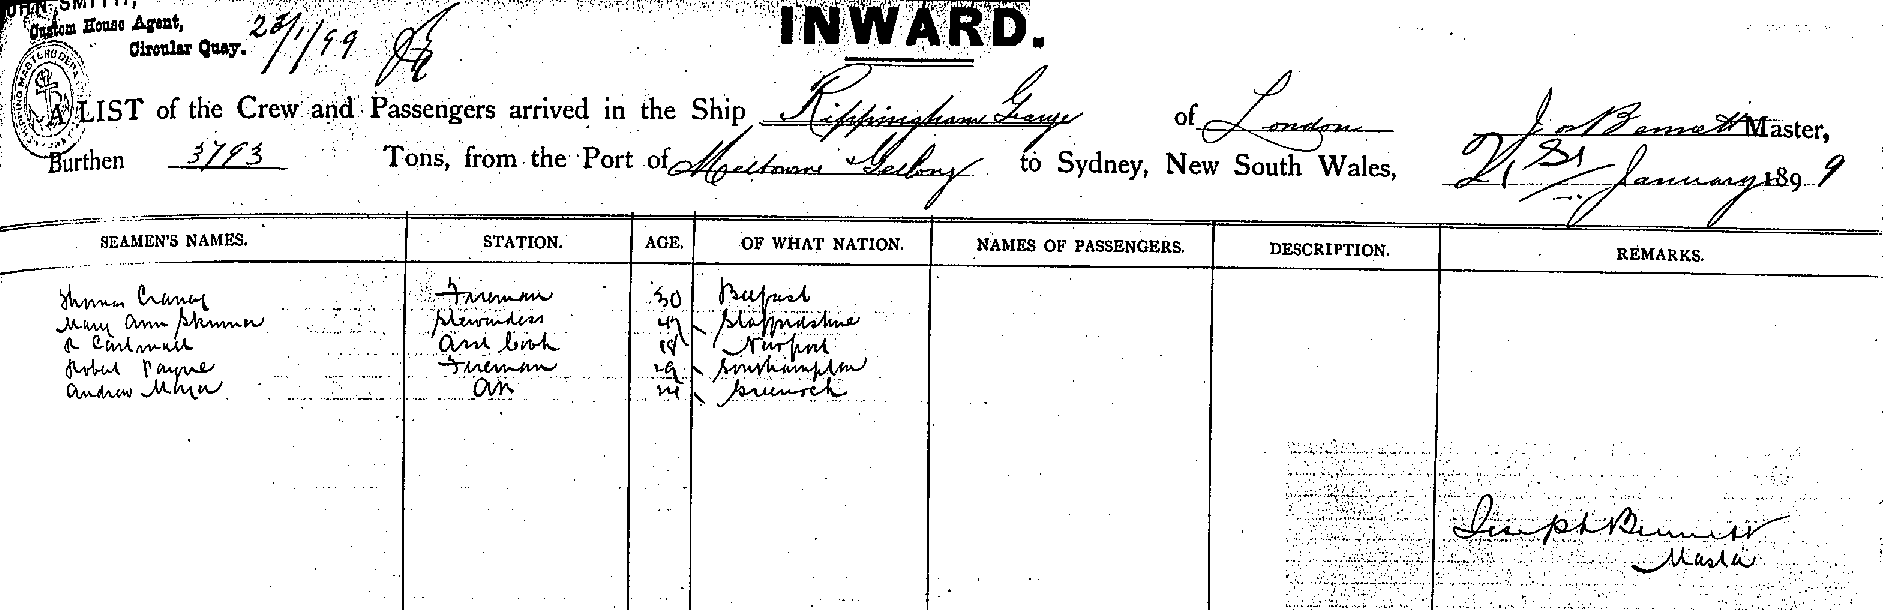 JOHN SMITH,
Custom House Agent,
Circular Quay. 23/1/99
INWARD.
A LIST of the Crew and Passengers arrived in the Ship Rippingham Grange of London Jos Bennett Master,
Burthen 3793 Tons, from the Port of Melbourne & Geelong to Sydney, New South Wales, January 1899
SEAMEN'S NAMES. STATION. AGE. OF WHAT NATION. NAMES OF PASSENGERS. DESCRIPTION. REMARKS.
Thomas Fireman 30 Belfast
Mary Ann Skinner Stewardess Staffordshire
R Asst Cook 18 Newport
Robert Payne Fireman 29 Southampton
Andrew AB Greenock
Joseph Bennett
Master